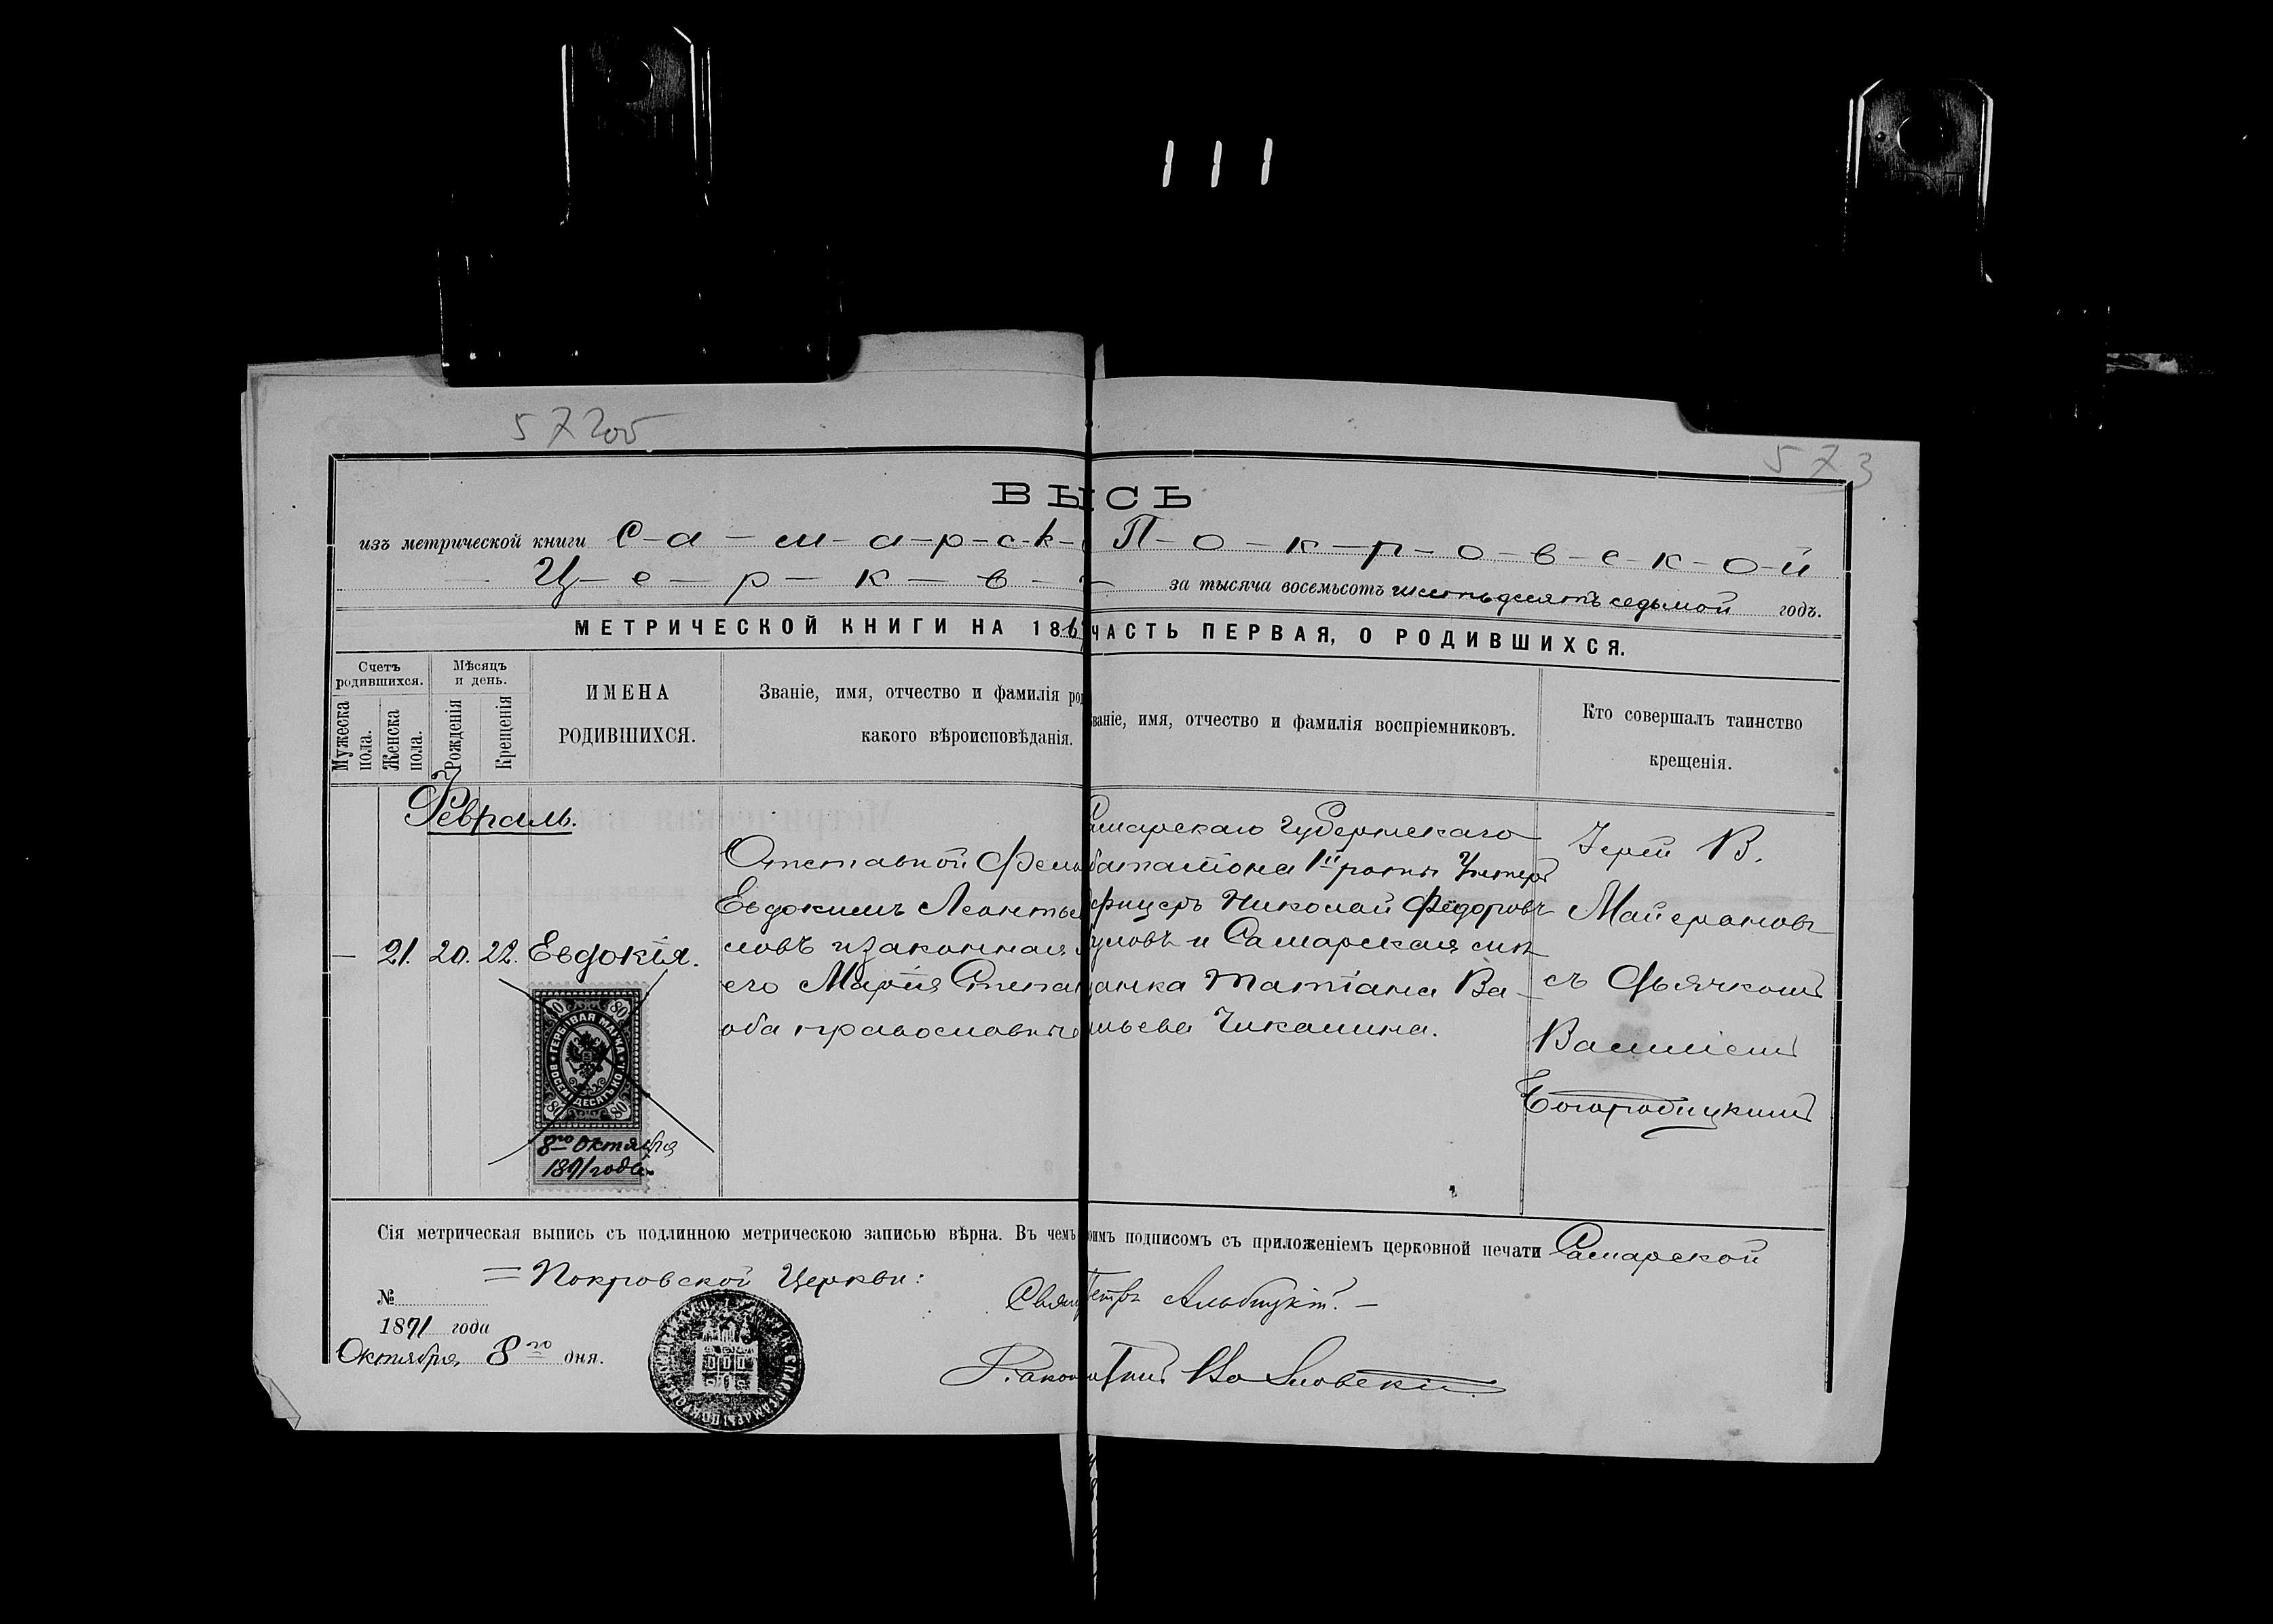 111
57205
573
ВЫ СЬ
изъ метрической книги С-а-м-а-р-с-к- П-о-к-р-о-в-с-к-о-й
Ц-е-р-к-в- за тысяча восемьсотъ шестьдесятъ седьмой годъ.
МЕТРИЧЕСКОЙ КНИГИ НА 186 ЧАСТЬ ПЕРВАЯ, О РОДИВШИХСЯ.
Счетъ родившихся.
Мужеска пола.
Женска пола.
Мѣсяцъ и день.
Рожденія
Крещенія
ИМЕНА
РОДИВШИХСЯ.
Званіе, имя, отчество и фамилія род
какого вѣроисповѣданія.
званіе, имя, отчество и фамилія воспріемниковъ.
Кто совершалъ таинство
крещенія.
Февраль.
— 21. 20. 22. Евдокія.
Отставной Фель
Евдокимъ Леонтье
ловъ и законная
его Марія Степа
оба православны
Самарскаго Губернскаго
баталіона 1й роты Унтеръ
фицеръ Николай Фёдоровъ
уловъ и Самарская мѣ
щанка Татіана Ва
ильева Чикалина.
Іерей В.
Майерановъ
съ Дьячкомъ
Василіемъ
Богородицкимъ
80 80
ГЕРБОВАЯ МАРКА
ВОСЕМЬДЕСЯТЪ КОП.
80 80
8го Октября
1891 года.
Сія метрическая выпись съ подлинною метрическою записью вѣрна. Въ чемъ оимъ подписомъ съ приложеніемъ церковной печати Самарской
= Покровской Церкви:
№
1891 года
Октября 8го дня.
Свящ Петръ Альбицкій. —